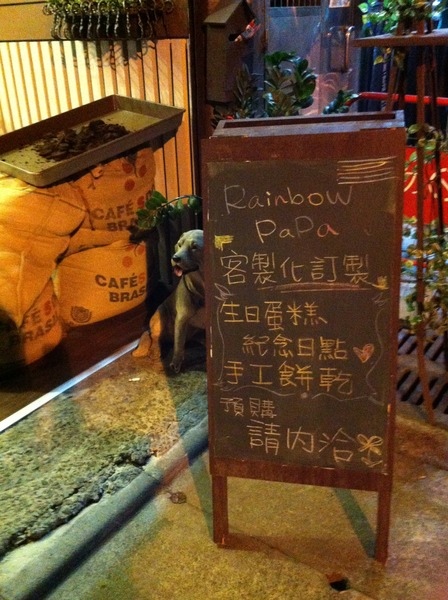 Rainbow
PaPa
客製化訂製
生日蛋糕
紀念日點
手工餅乾
預購
請內洽
CAFÉ
BRA
CAFÉS
BRAS